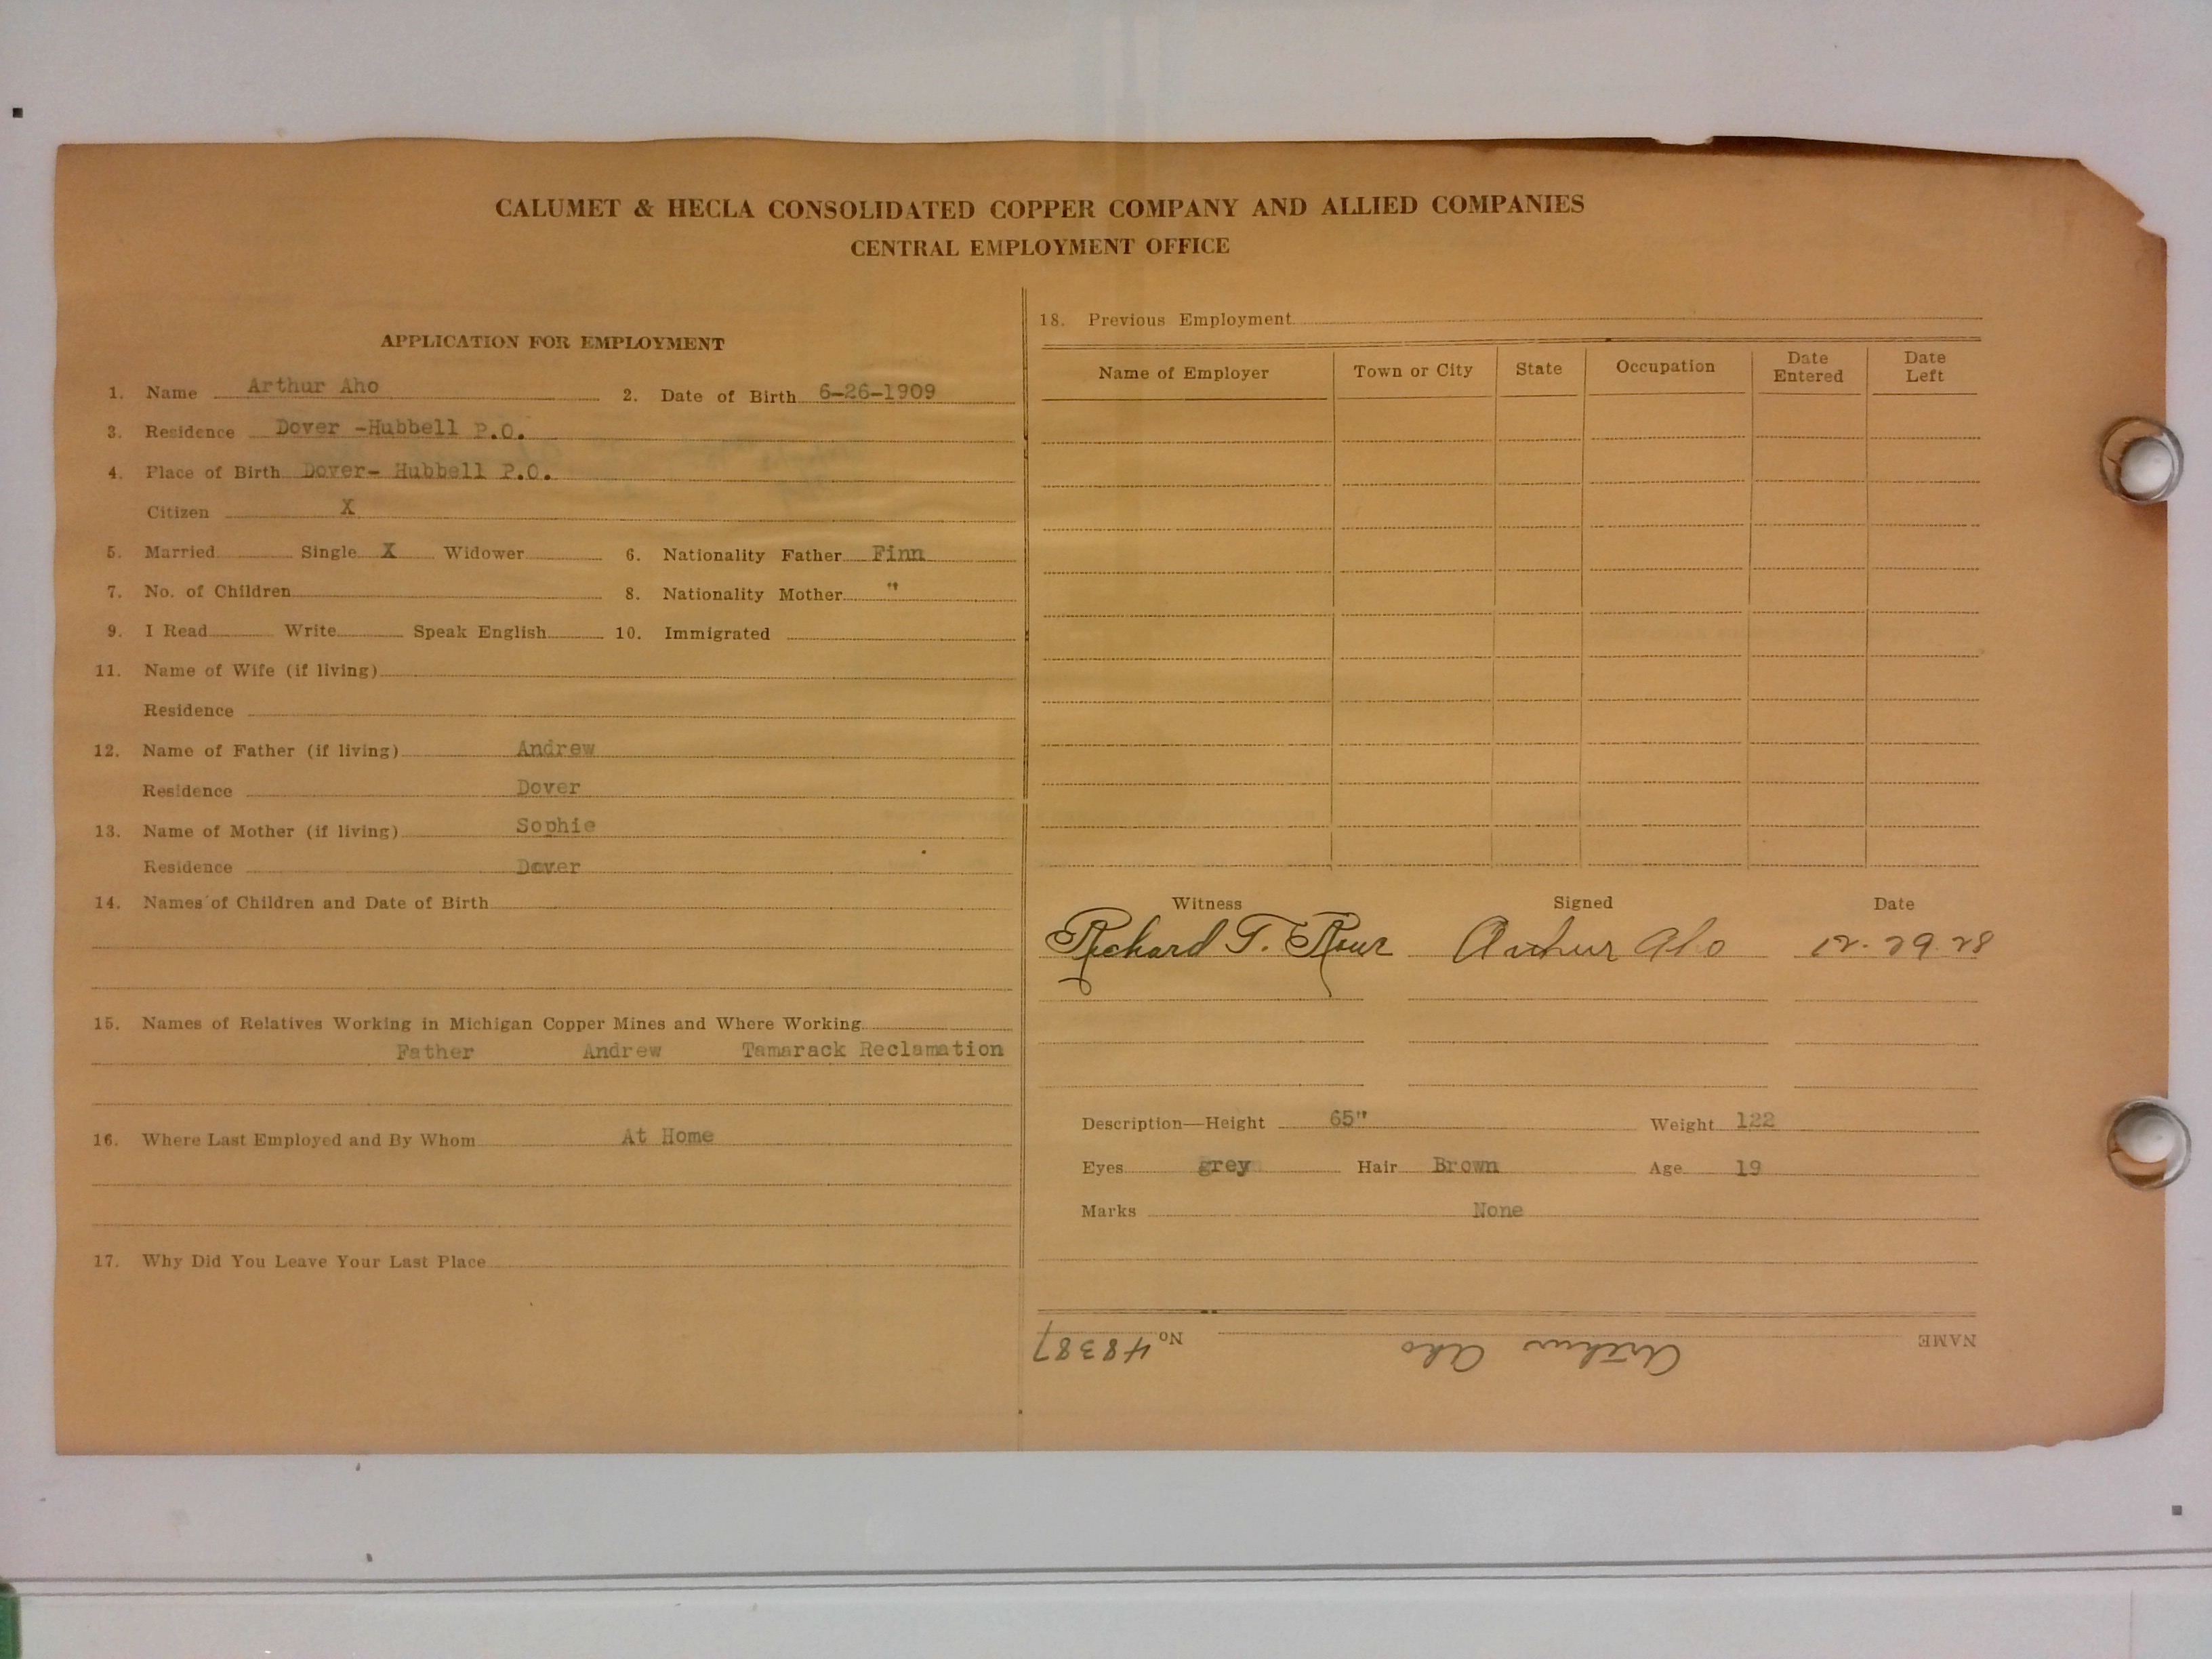 CALUMET & HECLA CONSOLIDATED COPPER COMPANY AND ALLIED COMPANIES
CENTRAL EMPLOYMENT OFFICE
APPLICATION FOR EMPLOYMENT
1. Name Arthur Aho 2. Date of Birth 6-26-1909
3. Residence Dover -Hubbell P.O.
4. Place of Birth Dover- Hubbell P.O.
Citizen X
5. Married Single X Widower 6. Nationality Father Finn
7. No. of Children 8. Nationality Mother "
9. I Read Write Speak English 10. Immigrated
11. Name of Wife (if living)
Residence
12. Name of Father (if living) Andrew
Residence Dover
13. Name of Mother (if living) Sophie
Residence Dover
14. Names of Children and Date of Birth
15. Names of Relatives Working in Michigan Copper Mines and Where Working
Father Andrew Tamarack Reclamation
16. Where Last Employed and By Whom At Home
17. Why Did You Leave Your Last Place
18. Previous Employment
Name of Employer Town or City State Occupation Date Entered Date Left
Witness Signed Date
Richard T. Arthur Aho 12-29-28
Description—Height 65" Weight 122
Eyes grey Hair Brown Age 19
Marks None
NAME Arthur Aho No 48387